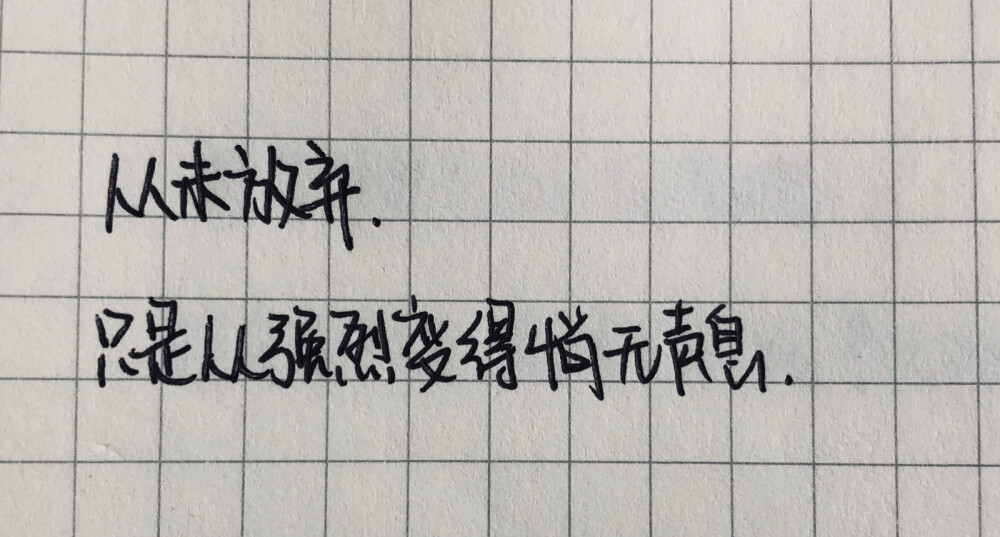 从未放弃.
只是从强烈变得悄无声息.